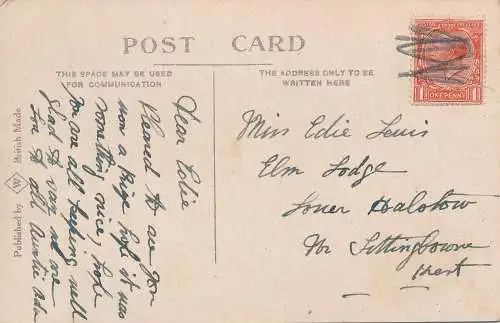 POST CARD
THIS SPACE MAY BE USED
FOR COMMUNICATION
THE ADDRESS ONLY TO BE
WRITTEN HERE
Dear Edie
Pleased to see you
won a Prize hope it was
something nice, hope
you are all keeping well
glad to say we are
love to all Auntie Ada
Miss Edie Lewis
Elm Lodge
Lower Halstow
Nr Sittingbourne
Kent
ONE PENNY
Published by W British Made